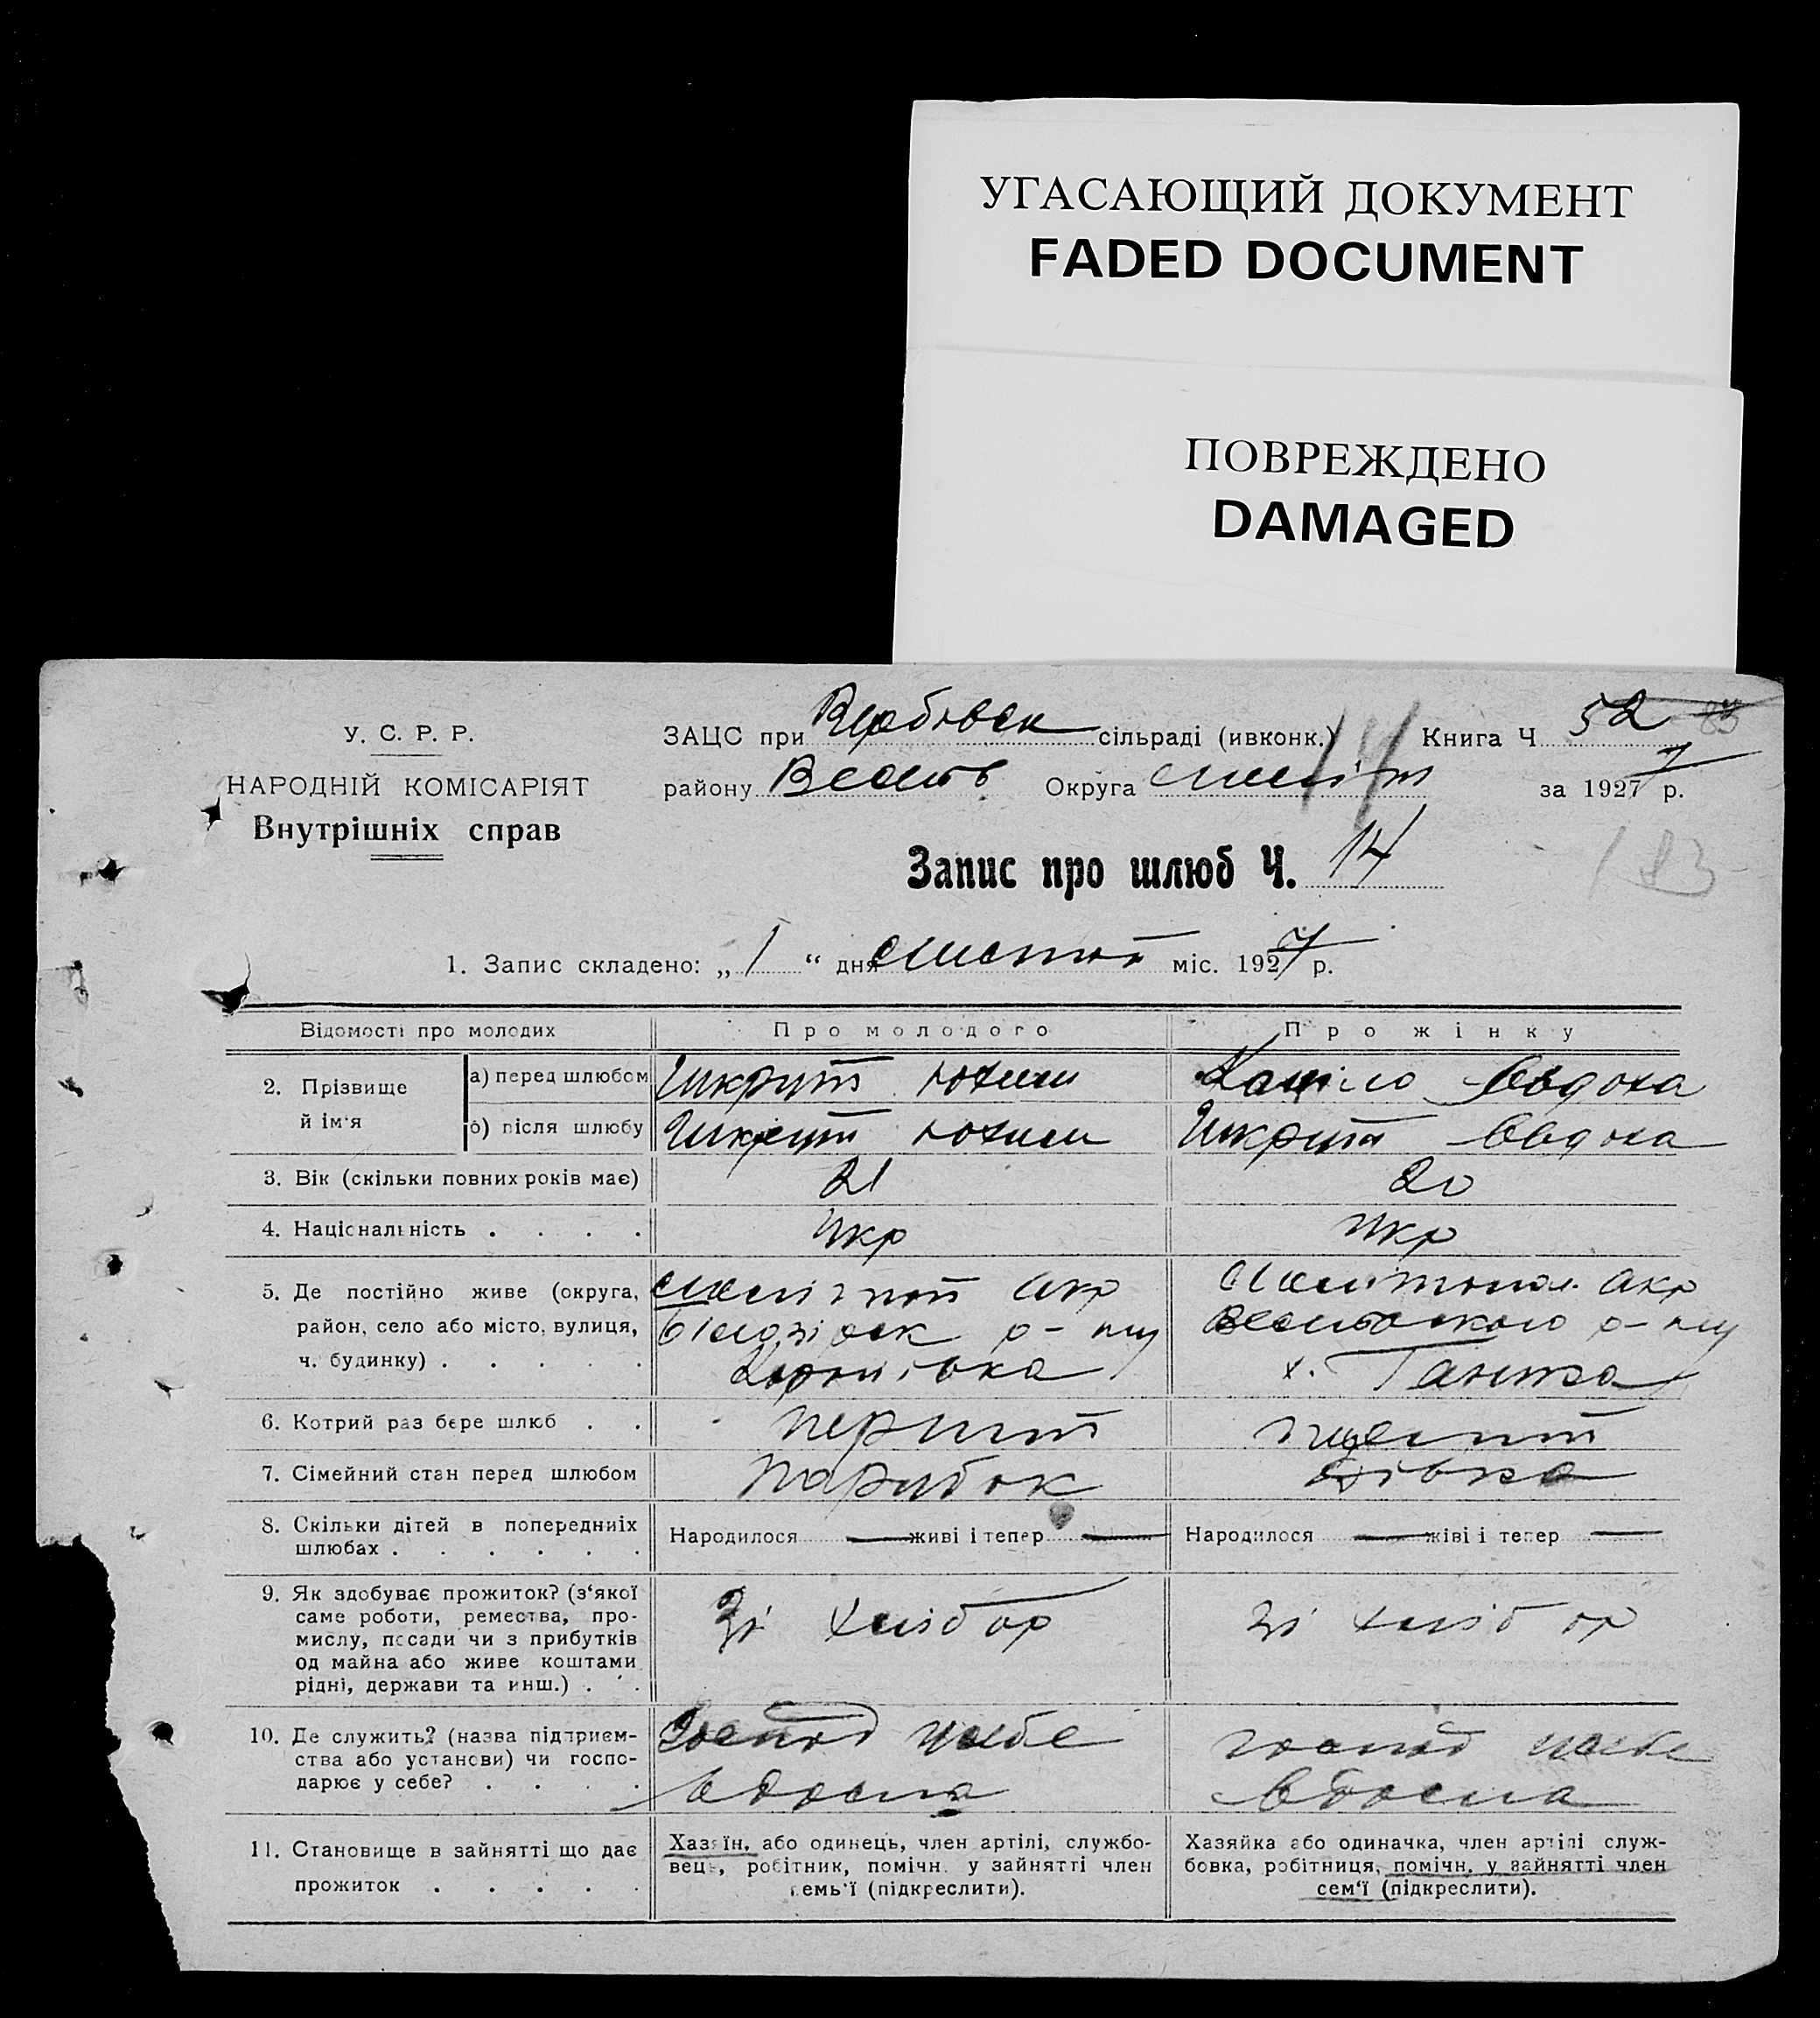 УГАСАЮЩИЙ ДОКУМЕНТ
FADED DOCUMENT
ПОВРЕЖДЕНО
DAMAGED
У. С. Р. Р.
НАРОДНІЙ КОМІСАРІЯТ
Внутрішніх справ
ЗАЦС при Вербовск сільраді (ивконк.) Книга Ч 52
району Округа за 1927 р.
Запис про шлюб Ч. 14
183
1. Запис складено: „ 1 “ дня міс. 1927 р.
Відомості про молодих
Про молодого
Про жінку
2. Прізвище й ім'я
а) перед шлюбом
Шкрут Юхим
Овдоха
б) після шлюбу
Шкрут Юхим
Шкрут Овдоха
3. Вік (скільки повних років має)
21
20
4. Національність . . . .
Укр
Укр
5. Де постійно живе (округа,
район, село або місто, вулиця,
ч. будинку) . . . . .
окр
р-ну
Мелітопол. окр
р-ну
х. Ганжа
6. Котрий раз бере шлюб . .
перший
7. Сімейний стан перед шлюбом
парубок
дівка
8. Скільки дітей в попередніх
шлюбах . . . . . .
Народилося — живі і тепер —
Народилося — жіві і тепер —
9. Як здобуває прожиток? (з'якої
саме роботи, ремества, про-
мислу, посади чи з прибутків
од майна або живе коштами
рідні, держави та инш.) . .
Зі хлібор
Зі хлібор
10. Де служить? (назва підприєм-
ства або установи) чи госпо-
дарює у себе? . . . .
господ у себе
господ у себе
11. Становище в зайнятті що дає
прожиток . . . . .
Хазяїн, або одинець, член артілі, службо-
вець, робітник, помічн. у зайнятті член
семь'ї (підкреслити).
Хазяйка або одиначка, член артілі служ-
бовка, робітниця, помічн. у зайнятті член
сем'ї (підкреслити).